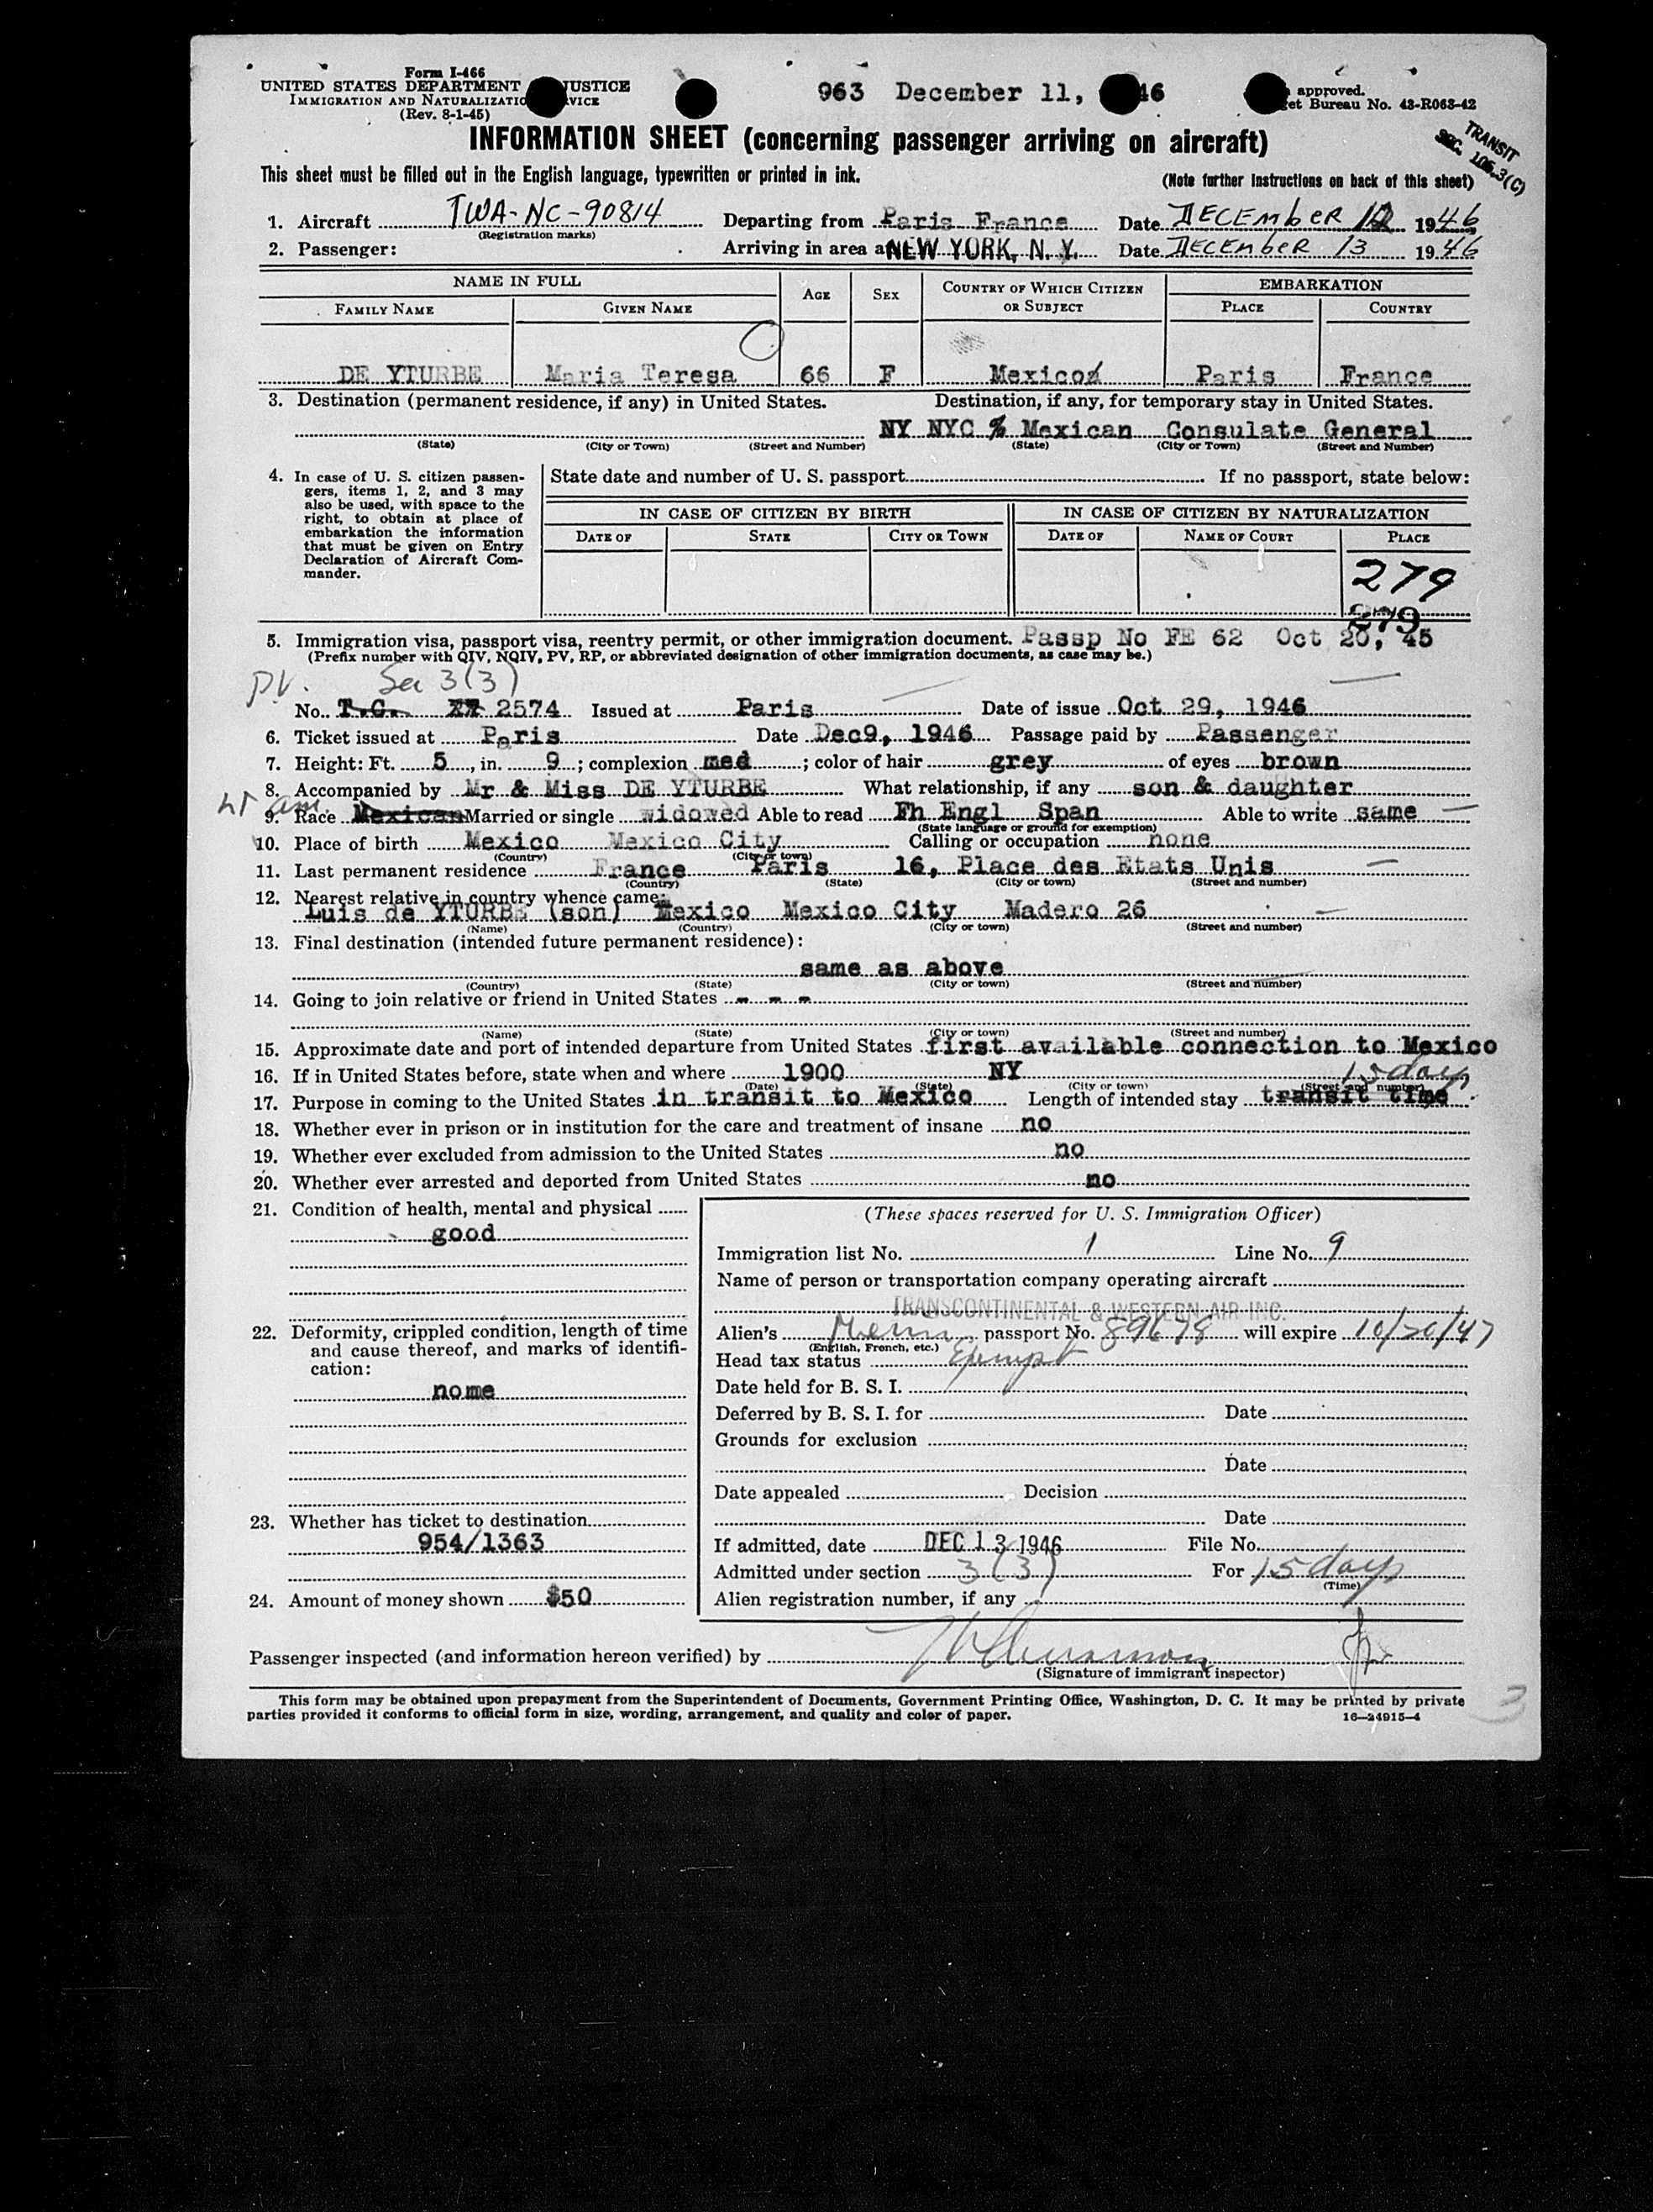 Form I-466
UNITED STATES DEPARTMENT JUSTICE
IMMIGRATION AND NATURALIZATIO VICE
(Rev. 8-1-45)
963 December 11, 46
approved.
et Bureau No. 43-R063-42
TRANSIT
SEC. 106.3(C)
INFORMATION SHEET (concerning passenger arriving on aircraft)
This sheet must be filled out in the English language, typewritten or printed in ink.
(Note further instructions on back of this sheet)
1. Aircraft TWA-NC-90814 Departing from Paris France Date DECEMbER 12 1946
(Registration marks)
2. Passenger: Arriving in area at NEW YORK, N. Y. Date DECEMbER 13 1946
NAME IN FULL AGE SEX COUNTRY OF WHICH CITIZEN OR SUBJECT EMBARKATION
FAMILY NAME GIVEN NAME PLACE COUNTRY
DE YTURBE Maria Teresa 66 F Mexico Paris France
3. Destination (permanent residence, if any) in United States. Destination, if any, for temporary stay in United States.
NY NYC % Mexican Consulate General
(State) (City or Town) (Street and Number) (State) (City or Town) (Street and Number)
4. In case of U. S. citizen passengers, items 1, 2, and 3 may also be used, with space to the right, to obtain at place of embarkation the information that must be given on Entry Declaration of Aircraft Commander.
State date and number of U. S. passport If no passport, state below:
IN CASE OF CITIZEN BY BIRTH IN CASE OF CITIZEN BY NATURALIZATION
DATE OF STATE CITY OR TOWN DATE OF NAME OF COURT PLACE
279
279
5. Immigration visa, passport visa, reentry permit, or other immigration document. Passp No FE 62 Oct 20, 45
(Prefix number with QIV, NQIV, PV, RP, or abbreviated designation of other immigration documents, as case may be.)
PV. Sec 3(3)
No. T.C. 2574 Issued at Paris Date of issue Oct 29, 1946
6. Ticket issued at Paris Date Dec9, 1946 Passage paid by Passenger
7. Height: Ft. 5, in. 9; complexion med; color of hair grey of eyes brown
8. Accompanied by Mr & Miss DE YTURBE What relationship, if any son & daughter
9. Race Mexican Married or single widowed Able to read Fh Engl Span Able to write same
(State language or ground for exemption)
10. Place of birth Mexico Mexico City Calling or occupation none
(Country) (City or town)
11. Last permanent residence France Paris 16, Place des Etats Unis
(Country) (State) (City or town) (Street and number)
12. Nearest relative in country whence came:
Luis de YTURBE (son) Mexico Mexico City Madero 26
(Name) (Country) (City or town) (Street and number)
13. Final destination (intended future permanent residence):
same as above
(Country) (State) (City or town) (Street and number)
14. Going to join relative or friend in United States - - -
(Name) (State) (City or town) (Street and number)
15. Approximate date and port of intended departure from United States first available connection to Mexico
16. If in United States before, state when and where 1900 NY
(Date) (State) (City or town) (Street and number)
15 days
17. Purpose in coming to the United States in transit to Mexico Length of intended stay transit time
18. Whether ever in prison or in institution for the care and treatment of insane no
19. Whether ever excluded from admission to the United States no
20. Whether ever arrested and deported from United States no
21. Condition of health, mental and physical
good
22. Deformity, crippled condition, length of time and cause thereof, and marks of identification:
nome
23. Whether has ticket to destination
954/1363
24. Amount of money shown $50
(These spaces reserved for U. S. Immigration Officer)
Immigration list No. 1 Line No. 9
Name of person or transportation company operating aircraft
TRANSCONTINENTAL & WESTERN AIR INC.
Alien's passport No. 89678 will expire 10/20/47
(English, French, etc.)
Head tax status Exempt
Date held for B. S. I.
Deferred by B. S. I. for Date
Grounds for exclusion
Date
Date appealed Decision
Date
If admitted, date DEC 13 1946 File No.
Admitted under section 3(3) For 15 days
(Time)
Alien registration number, if any
Passenger inspected (and information hereon verified) by
(Signature of immigrant inspector)
This form may be obtained upon prepayment from the Superintendent of Documents, Government Printing Office, Washington, D. C. It may be printed by private
parties provided it conforms to official form in size, wording, arrangement, and quality and color of paper.
16—24915-4
3